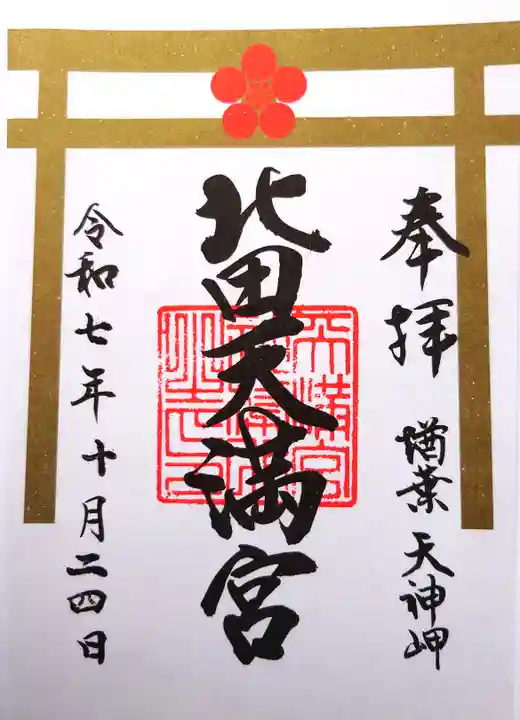 奉拝
楢葉 天神岬
北田天満宮
令和七年十月二四日